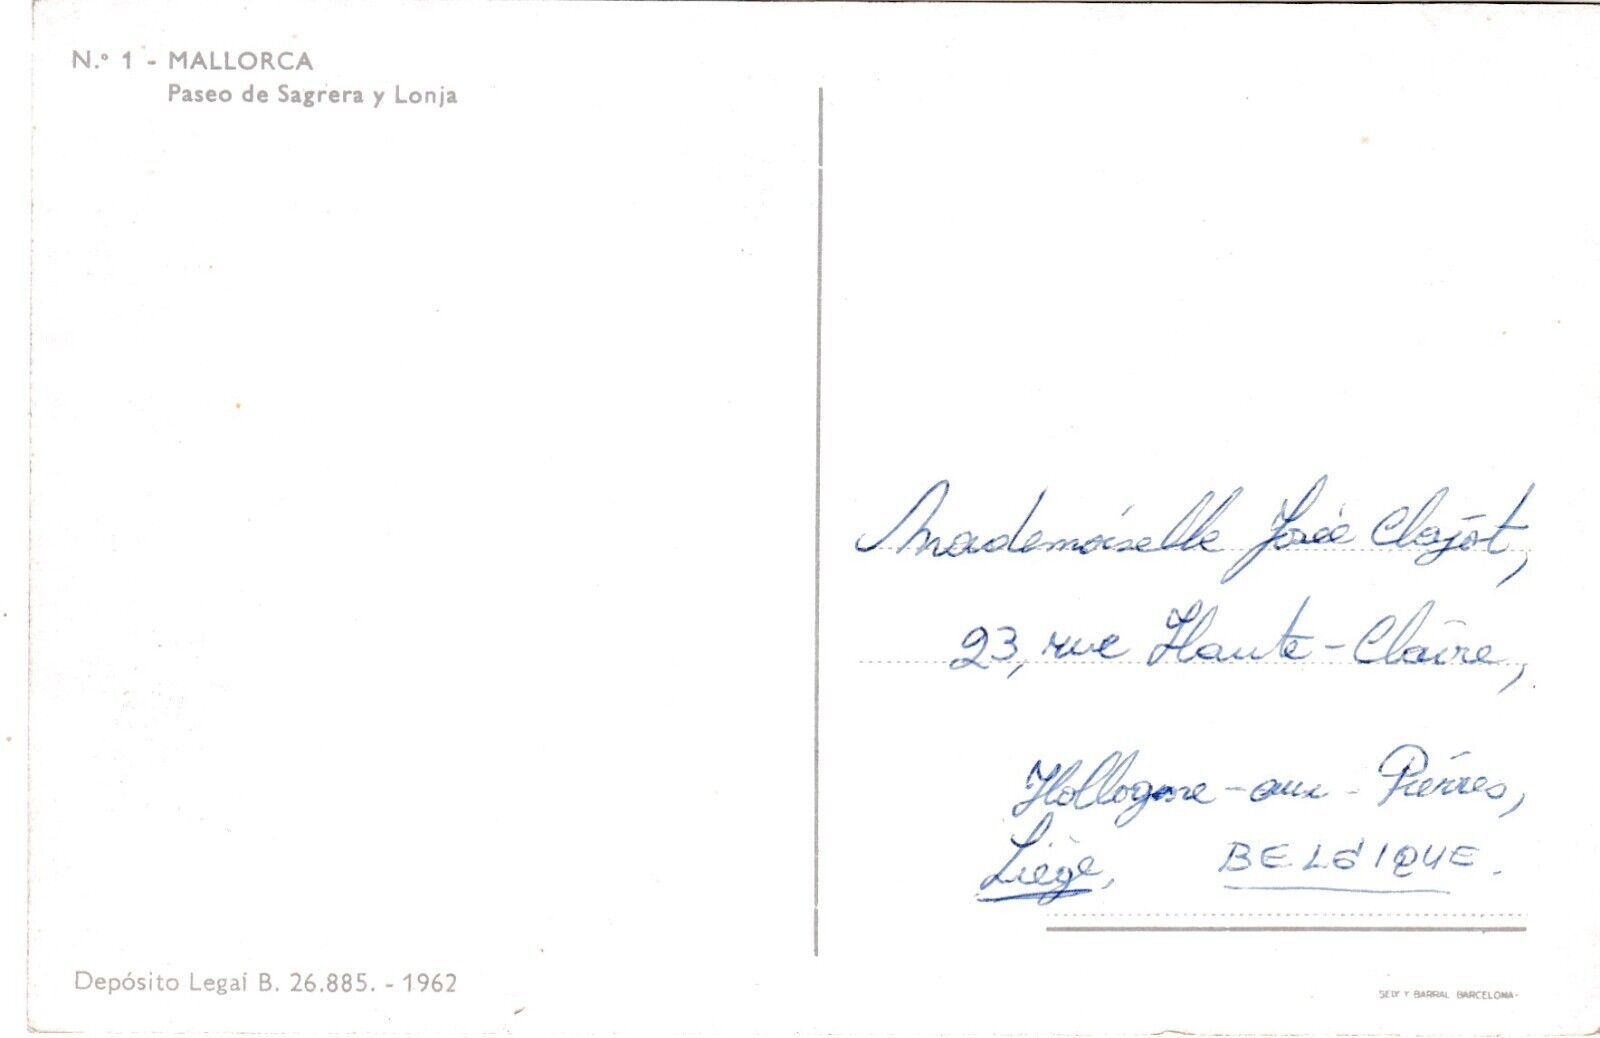 N.º 1 - MALLORCA
Paseo de Sagrera y Lonja
Mademoiselle Josée Clajot,
23, rue Haute-Claire,
Hollogne-aux-Pierres,
Liège, BELGIQUE.
Depósito Legal B. 26.885. - 1962
SEIX Y BARRAL BARCELONA-